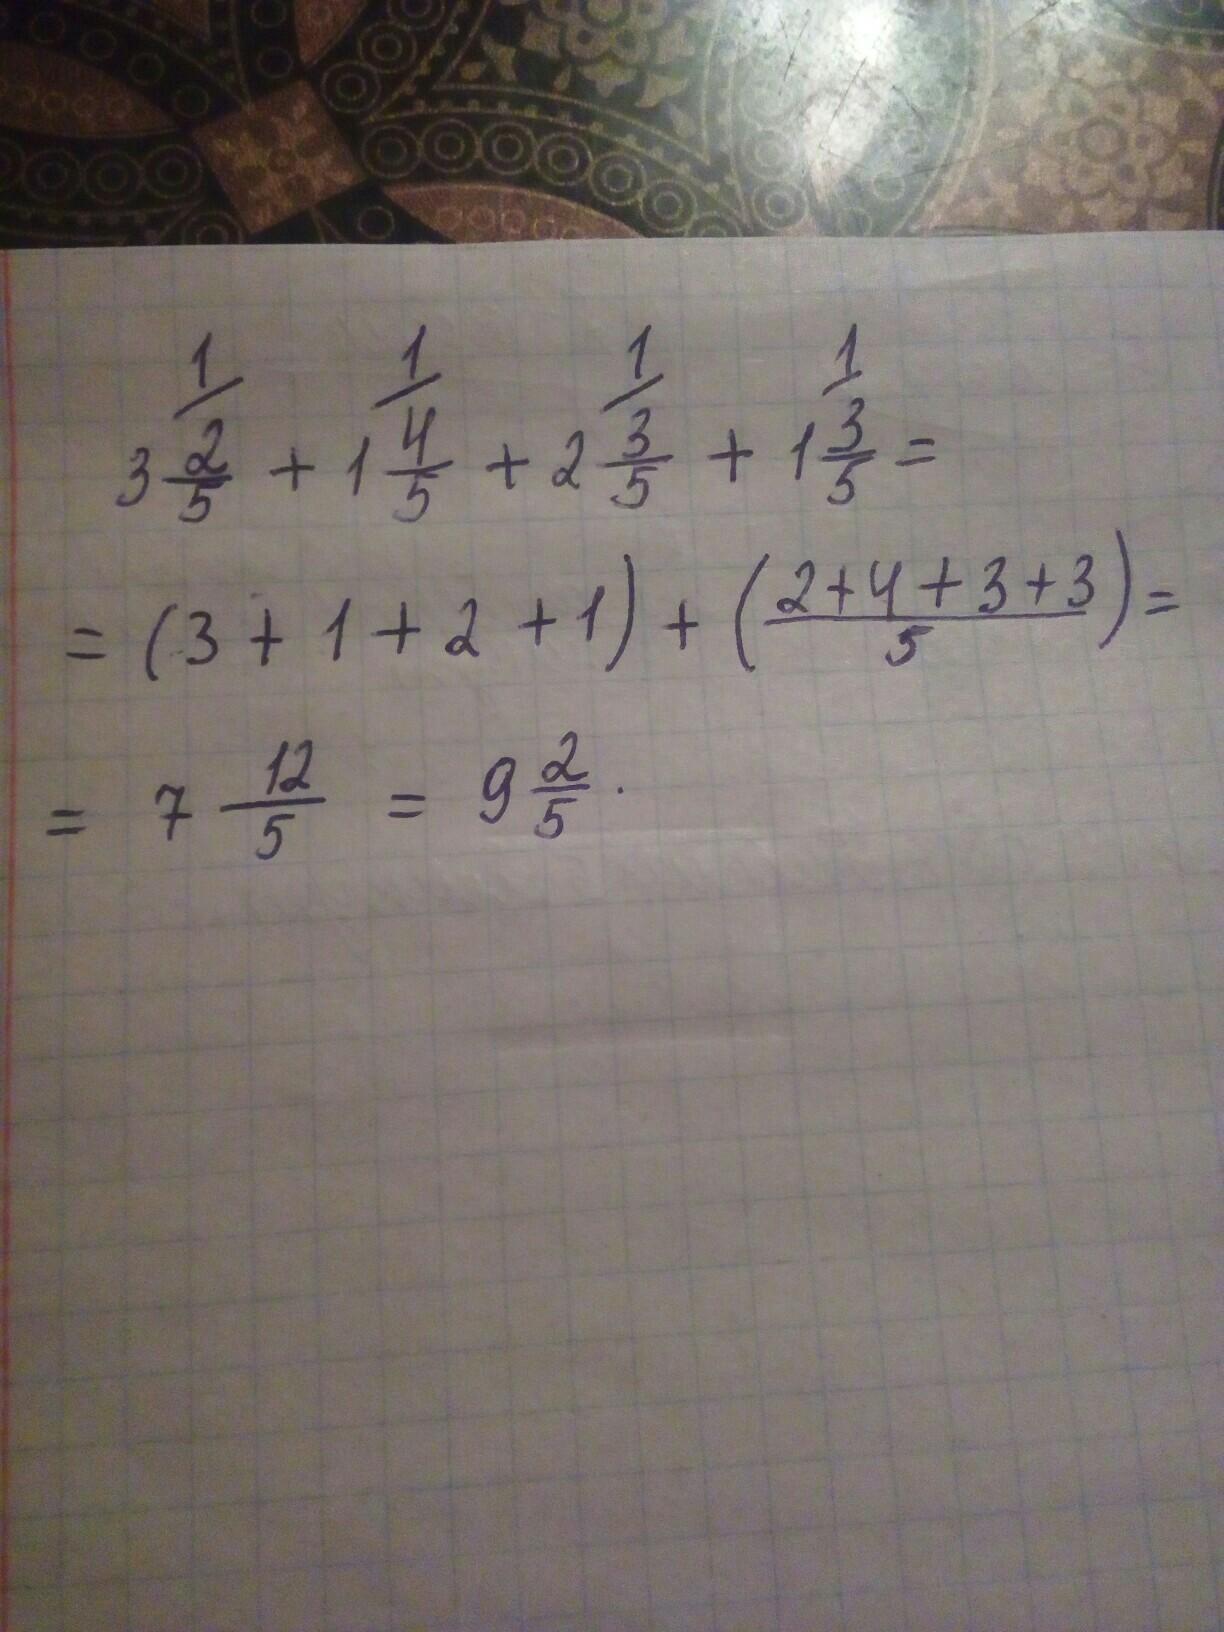 1/ 1/ 1/ 1/
3 2/5 + 1 4/5 + 2 3/5 + 1 3/5 =
= (3 + 1 + 2 + 1) + ((2+4+3+3)/5) =
= 7 12/5 = 9 2/5 .